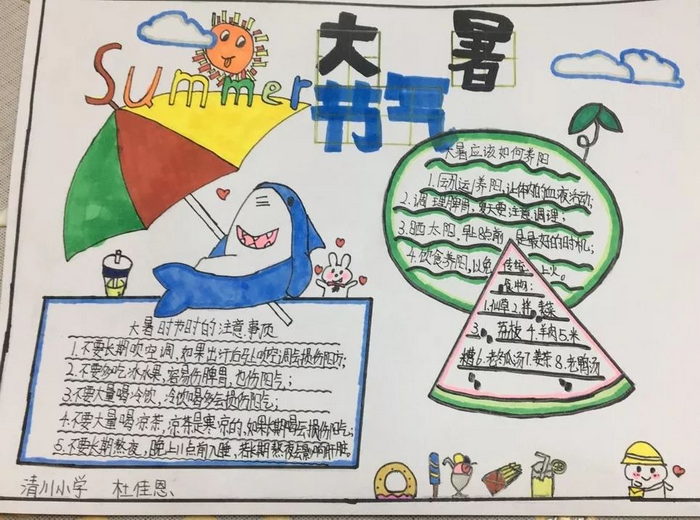 Summer
大暑
节气
大暑应该如何养阳
1.运动养阳,让体内血液活动;
2.调理脾胃,夏天要注意调理;
3.晒太阳,早上8点前是最好的时机;
4.饮食养阳,以免上火。
传统
食物:
1.仙草 2.拌
3. 荔枝 4.羊肉 5.米
糟 6.老冬瓜汤 7.姜茶 8.老鸭汤
大暑时节时的注意事项
1.不要长期吹空调,如果出汗后马上吹空调会损伤阳气;
2.不要多吃冰水果,容易伤脾胃,也伤阳气;
3.不要大量喝冷饮,冷饮喝多会损伤阳气;
4.不要大量喝凉茶,凉茶是寒凉的,如果长期喝会损伤阳气;
5.不要长期熬夜,晚上11点前入睡,若长期熬夜会影响肝脏。
清川小学 杜佳恩